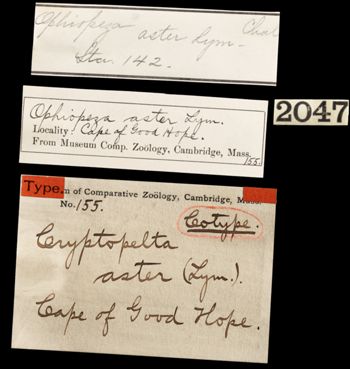 Ophiopeza aster Lym.
Sta. 142.
Ophiopeza aster Lym.
Locality: Cape of Good Hope.
From Museum Comp. Zoölogy, Cambridge, Mass.
155.
2047
Type.
m of Comparative Zoölogy, Cambridge, Mass.
No. 155.
Cotype.
Cryptopelta
aster (Lym.).
Cape of Good Hope.